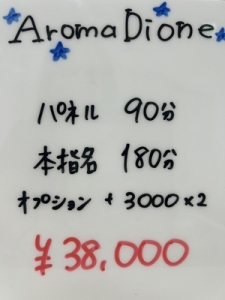 AromaDione
パネル 90分
本指名 180分
オプション + 3000×2
¥38,000